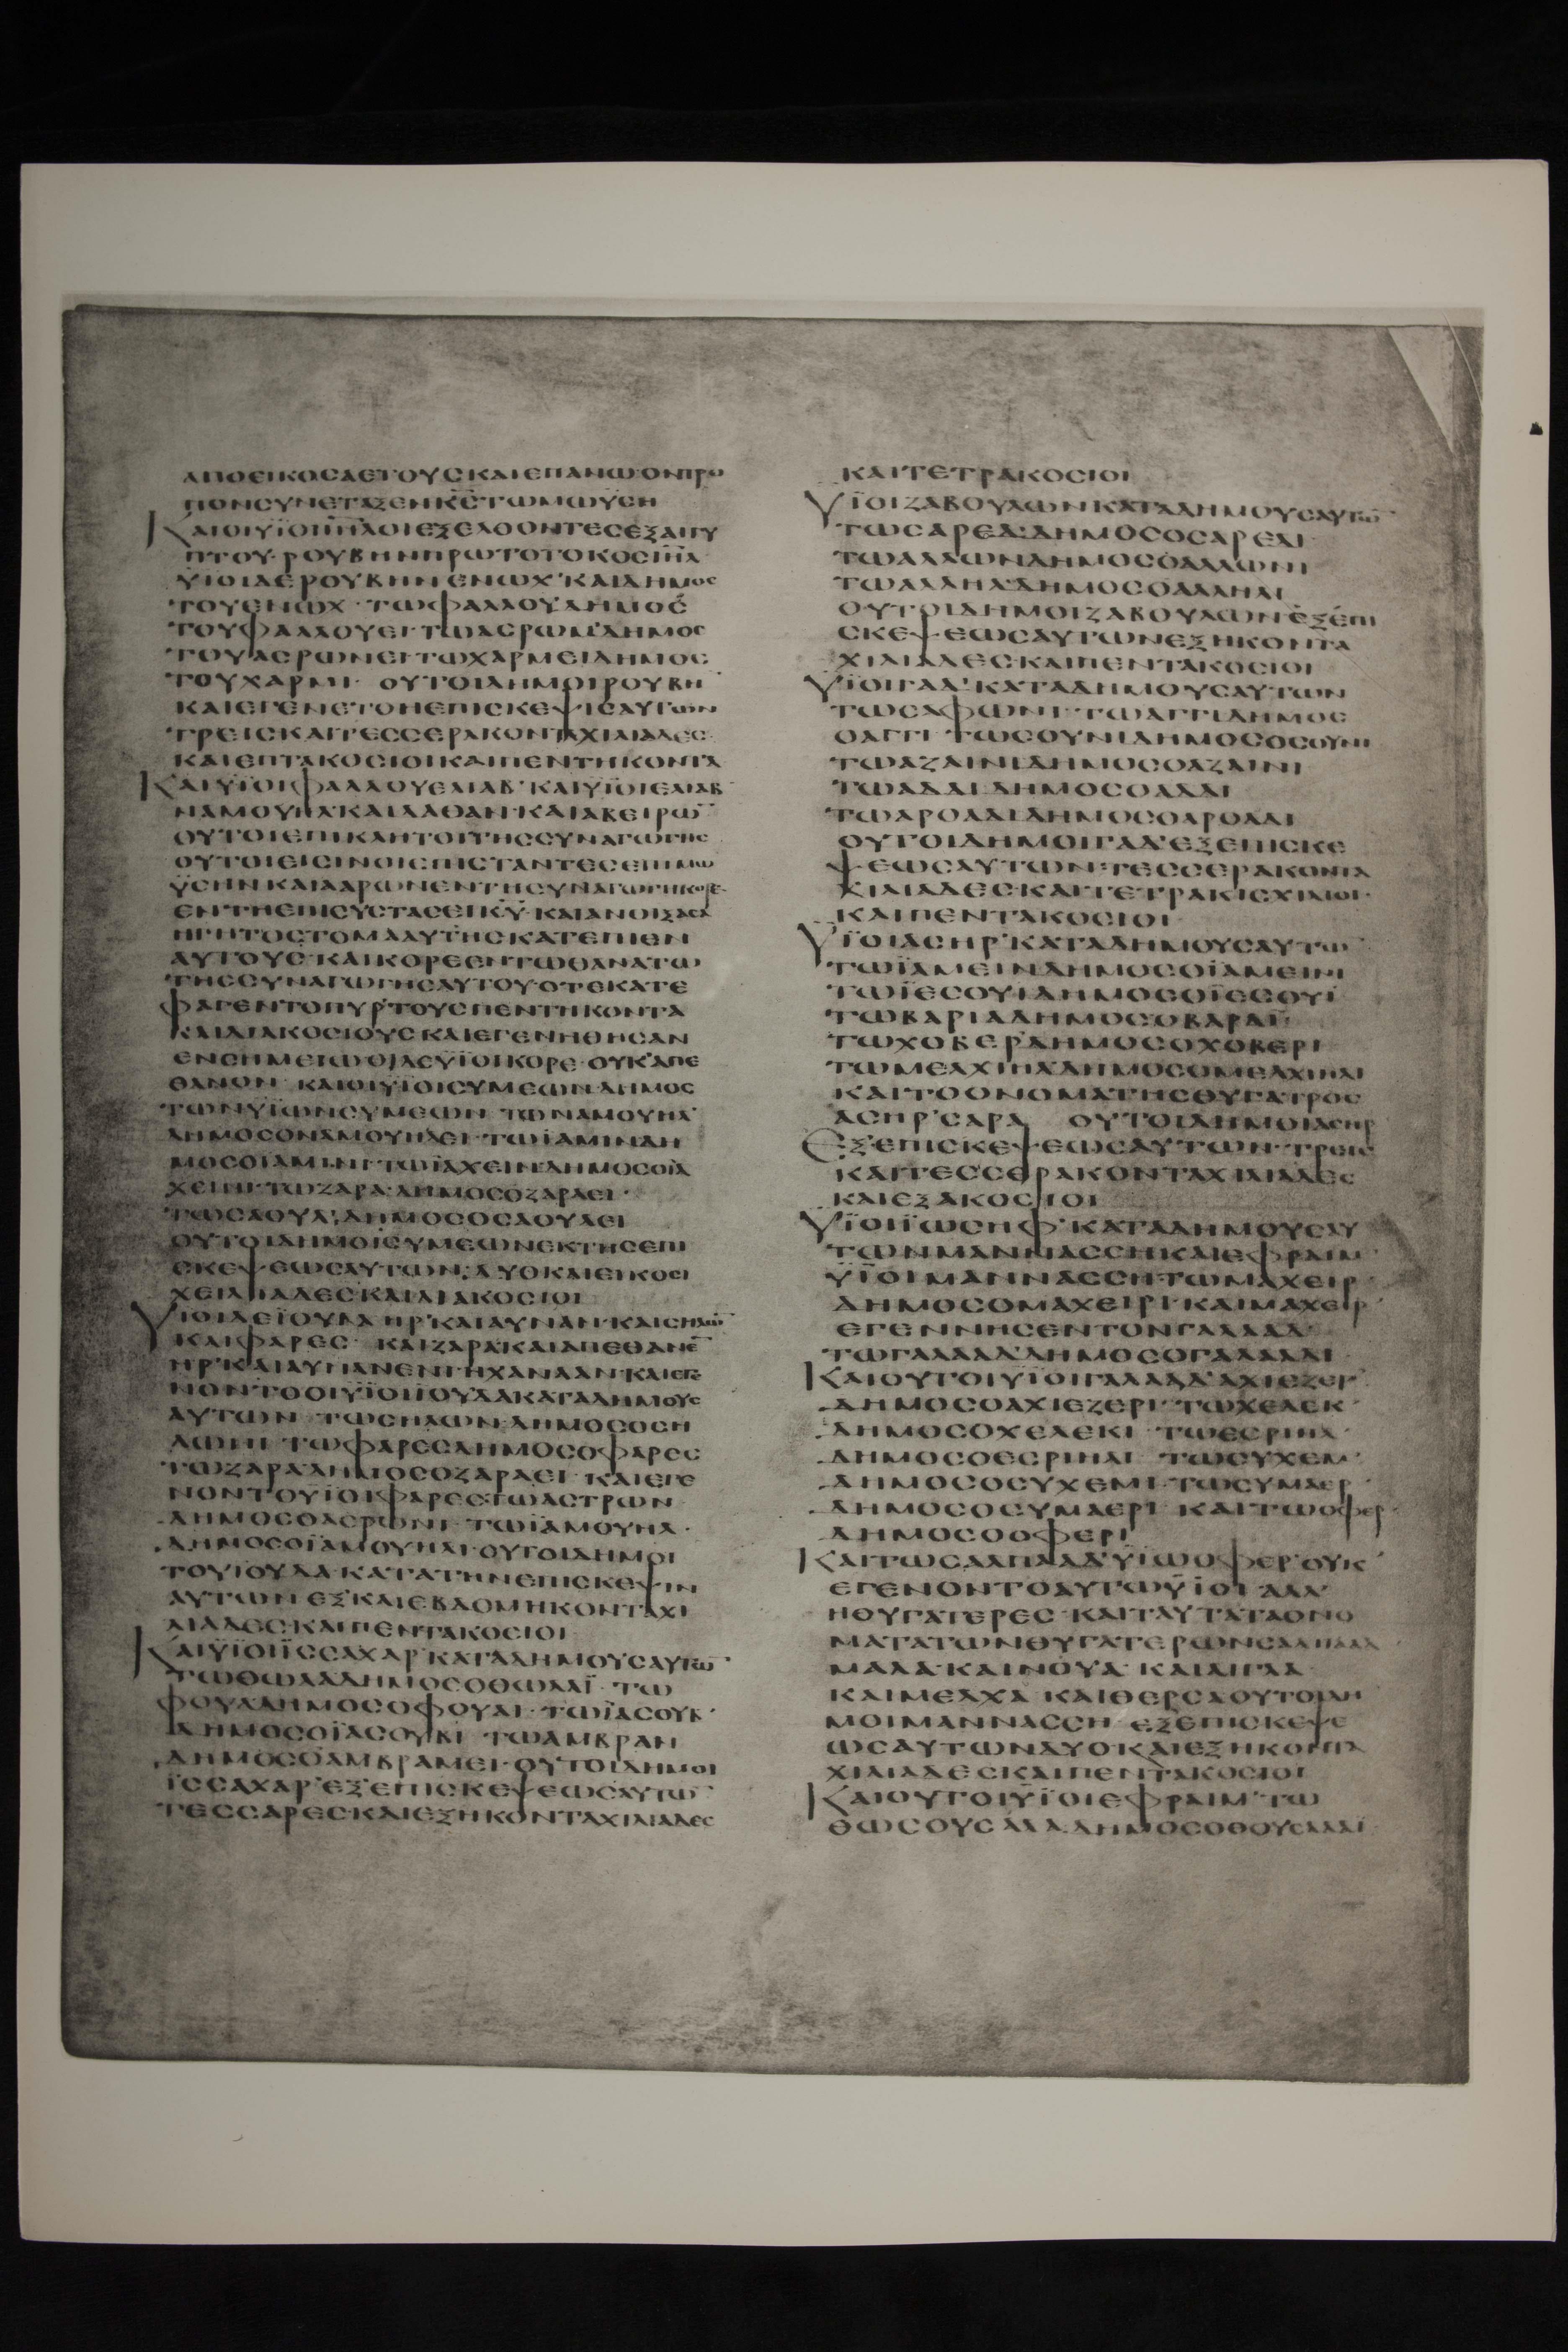 ΑΠΟΕΙΚΟΣΑΕΤΟΥΣΚΑΙΕΠΑΝΩ·ΟΝΤΡΟ
ΠΟΝΣΥΝΕΤΑΞΕΝΚ̅Σ̅ΤΩΜΩΫΣΗ
ΚΑΙΟΙΥΪΟΙΙ̅Η̅Λ̅ΟΙΕΞΕΛΘΟΝΤΕΣΕΞΑΙΓΥ
ΠΤΟΥ·ΡΟΥΒΗΝΠΡΩΤΟΤΟΚΟΣΙ̅Η̅Λ̅
ΫΙΟΙΔΕΡΟΥΒΗΝΕΝΩΧ·ΚΑΙΔΗΜΟΣ
ΤΟΥΕΝΩΧ·ΤΩΦΑΛΛΟΥΔΗΜΟΣ
ΤΟΥΦΑΛΛΟΥΕΙ·ΤΩΑΣΡΩΜ·ΔΗΜΟΣ
ΤΟΥΑΣΡΩΝΕΙ·ΤΩΧΑΡΜΕΙΔΗΜΟΣ
ΤΟΥΧΑΡΜΙ· ΟΥΤΟΙΔΗΜΟΙΡΟΥΒΗ
ΚΑΙΕΓΕΝΕΤΟΗΕΠΙΣΚΕΨΙΣΑΥΤΩΝ
ΤΡΕΙΣΚΑΙΤΕΣΣΕΡΑΚΟΝΤΑΧΙΛΙΑΔΕΣ
ΚΑΙΕΠΤΑΚΟΣΙΟΙΚΑΙΠΕΝΤΗΚΟΝΤΑ
ΚΑΙΫΪΟΙΦΑΛΛΟΥΕΛΙΑΒ·ΚΑΙΫΪΟΙΕΛΙΑΒ
ΝΑΜΟΥΗΛ·ΚΑΙΔΑΘΑΝ·ΚΑΙΑΒΕΙΡΩ̅
ΟΥΤΟΙΕΠΙΚΛΗΤΟΙΤΗΣΣΥΝΑΓΩΓΗΣ
ΟΥΤΟΙΕΙΣΙΝΟΙΣΠΙΣΤΑΝΤΕΣΕΠΙΜΩ
ΫΣΗΝΚΑΙΑΑΡΩΝΕΝΤΗΣΥΝΑΓΩΓΗΚΟΡΕ·
ΕΝΤΗΕΠΙΣΥΣΤΑΣΕΙΚ̅Υ̅·ΚΑΙΑΝΟΙΞΑΣΑ
ΗΓΗΤΟΣΤΟΜΑΑΥΤΗΣΚΑΤΕΠΙΕΝ
ΑΥΤΟΥΣ·ΚΑΙΚΟΡΕΕΝΤΩΘΑΝΑΤΩ
ΤΗΣΣΥΝΑΓΩΓΗΣΑΥΤΟΥ·ΟΤΕΚΑΤΕ
ΦΑΓΕΝΤΟΠΥΡ·ΤΟΥΣΠΕΝΤΗΚΟΝΤΑ
ΚΑΙΔΙΑΚΟΣΙΟΥΣΚΑΙΕΓΕΝΗΘΗΣΑΝ
ΕΝΣΗΜΕΙΩΟΙΔΕΫΪΟΙΚΟΡΕ·ΟΥΚΑΠΕ
ΘΑΝΟΝ· ΚΑΙΟΙΫΪΟΙΣΥΜΕΩΝ·ΔΗΜΟΣ
ΤΩΝΥΪΩΝΣΥΜΕΩΝ· ΤΩΝΑΜΟΥΗΛ·
ΔΗΜΟΣΟΝΑΜΟΥΗΛΕΙ·ΤΩΪΑΜΙΝΔΗ
ΜΟΣΟΪΑΜΙΝΙ·ΤΩΪΑΧΕΙΝΔΗΜΟΣΟΪΑ
ΧΕΙΝΙ·ΤΩΖΑΡΑ·ΔΗΜΟΣΟΖΑΡΑΕΙ·
ΤΩΣΑΟΥΛ·ΔΗΜΟΣΟΣΑΟΥΛΕΙ
ΟΥΤΟΙΔΗΜΟΙΣΥΜΕΩΝΕΚΤΗΣΕΠΙ
ΣΚΕΨΕΩΣΑΥΤΩΝ·ΔΥΟΚΑΙΕΙΚΟΣΙ
ΧΕΙΛΙΑΔΕΣΚΑΙΔΙΑΚΟΣΙΟΙ
ΥΙΟΙΔΕΪΟΥΔΑΗΡ·ΚΑΙΑΥΝΑΝ·ΚΑΙΣΗΛΩ̅
ΚΑΙΦΑΡΕΣ· ΚΑΙΖΑΡΑ·ΚΑΙΑΠΕΘΑΝΕ̅
ΗΡ·ΚΑΙΑΥΝΑΝΕΝΓΗΧΑΝΑΑΝ·ΚΑΙΕΓΕ
ΝΟΝΤΟΟΙΥΪΟΙΪΟΥΔΑΚΑΤΑΔΗΜΟΥΣ
ΑΥΤΩΝ· ΤΩΣΗΛΩΝ·ΔΗΜΟΣΟΣΗ
ΛΩΝΙ· ΤΩΦΑΡΕΣΔΗΜΟΣΟΦΑΡΕΣ
ΤΩΖΑΡΑ·ΔΗΜΟΣΟΖΑΡΑΕΙ· ΚΑΙΕΓΕ
ΝΟΝΤΟΥΪΟΙΦΑΡΕΣ·ΤΩΑΣΤΡΩΝ
ΔΗΜΟΣΟΑΣΡΩΝΙ· ΤΩΪΑΜΟΥΗΛ·
ΔΗΜΟΣΟΪΑΜΟΥΗΛΙ·ΟΥΤΟΙΔΗΜΟΙ
ΤΟΥΪΟΥΔΑ·ΚΑΤΑΤΗΝΕΠΙΣΚΕΨΙΝ
ΑΥΤΩΝ· ΕΞΚΑΙΕΒΔΟΜΗΚΟΝΤΑΧΙ
ΛΙΑΔΕΣΚΑΙΠΕΝΤΑΚΟΣΙΟΙ
ΚΑΙΫΪΟΙΪΣΣΑΧΑΡ·ΚΑΤΑΔΗΜΟΥΣΑΥΤΩ̅
ΤΩΘΩΛΑΔΗΜΟΣΟΘΩΛΑΪ· ΤΩ
ΦΟΥΑΔΗΜΟΣΟΦΟΥΑΙ· ΤΩΪΑΣΟΥΒ·
ΔΗΜΟΣΟΪΑΣΟΥΒΙ· ΤΩΑΜΒΡΑΝ
ΔΗΜΟΣΟΑΜΒΡΑΜΕΙ·ΟΥΤΟΙΔΗΜΟΙ
ΪΣΣΑΧΑΡ·ΕΞΕΠΙΣΚΕΨΕΩΣΑΥΤΩ̅
ΤΕΣΣΑΡΕΣΚΑΙΕΞΗΚΟΝΤΑΧΙΛΙΑΔΕΣ
ΚΑΙΤΕΤΡΑΚΟΣΙΟΙ
ΥΪΟΙΖΑΒΟΥΛΩΝΚΑΤΑΔΗΜΟΥΣΑΥΤΩ̅
ΤΩΣΑΡΕΔ·ΔΗΜΟΣΟΣΑΡΕΔΙ·
ΤΩΑΛΛΩΝΔΗΜΟΣΟΑΛΛΩΝΙ
ΤΩΑΛΛΗΛ·ΔΗΜΟΣΟΑΛΛΗΛΙ
ΟΥΤΟΙΔΗΜΟΙΖΑΒΟΥΛΩΝΕΞΕΠΙ
ΣΚΕΨΕΩΣΑΥΤΩΝΕΞΗΚΟΝΤΑ
ΧΙΛΙΑΔΕΣΚΑΙΠΕΝΤΑΚΟΣΙΟΙ
ΥΪΟΙΓΑΔ·ΚΑΤΑΔΗΜΟΥΣΑΥΤΩΝ
ΤΩΣΑΦΩΝΙ· ΤΩΑΓΓΙΔΗΜΟΣ
ΟΑΓΓΙ· ΤΩΣΟΥΝΙΔΗΜΟΣΟΣΟΥΝΙ
ΤΩΑΖΑΙΝΙΔΗΜΟΣΟΑΖΑΙΝΙ
ΤΩΑΔΔΙΔΗΜΟΣΟΑΔΔΙ
ΤΩΑΡΟΔΔΙΔΗΜΟΣΟΑΡΟΔΔΙ
ΟΥΤΟΙΔΗΜΟΙΓΑΔ·ΕΞΕΠΙΣΚΕ
ΨΕΩΣΑΥΤΩΝ·ΤΕΣΣΕΡΑΚΟΝΤΑ
ΧΙΛΙΑΔΕΣ·ΚΑΙΤΕΤΡΑΚΙΣΧΙΛΙΟΙ·
ΚΑΙΠΕΝΤΑΚΟΣΙΟΙ·
ΥΪΟΙΑΣΗΡ·ΚΑΤΑΔΗΜΟΥΣΑΥΤΩ̅
ΤΩΪΑΜΕΙΝΔΗΜΟΣΟΪΑΜΕΙΝΙ
ΤΩΪΕΣΟΥΙΔΗΜΟΣΟΪΕΣΟΥΙ
ΤΩΒΑΡΙΑΔΗΜΟΣΟΒΑΡΑΪ·
ΤΩΧΟΒΕΡ·ΔΗΜΟΣΟΧΟΒΕΡΙ
ΤΩΜΕΛΧΙΗΛΔΗΜΟΣΟΜΕΛΧΙΗΛΙ
ΚΑΙΤΟΟΝΟΜΑΤΗΣΘΥΓΑΤΡΟΣ
ΑΣΗΡ·ΣΑΡΑ ΟΥΤΟΙΔΗΜΟΙΑΣΗΡ
ΕΞΕΠΙΣΚΕΨΕΩΣΑΥΤΩΝ·ΤΡΕΙΣ
ΚΑΙΤΕΣΣΕΡΑΚΟΝΤΑΧΙΛΙΑΔΕΣ
ΚΑΙΕΞΑΚΟΣΙΟΙ
ΥΪΟΙΪΩΣΗΦ·ΚΑΤΑΔΗΜΟΥΣΑΥ
ΤΩΝΜΑΝΝΑΣΣΗΚΑΙΕΦΡΑΙΜ·
ΫΪΟΙΜΑΝΝΑΣΣΗ·ΤΩΜΑΧΕΙΡ·
ΔΗΜΟΣΟΜΑΧΕΙΡΙ·ΚΑΙΜΑΧΕΙΡ·
ΕΓΕΝΝΗΣΕΝΤΟΝΓΑΛΑΑΔ·
ΤΩΓΑΛΑΑΔ·ΔΗΜΟΣΟΓΑΛΑΑΔΙ
ΚΑΙΟΥΤΟΙΥΪΟΙΓΑΛΑΑΔ·ΑΧΙΕΖΕΡ·
ΔΗΜΟΣΟΑΧΙΕΖΕΡΙ·ΤΩΧΕΛΕΚ·
ΔΗΜΟΣΟΧΕΛΕΚΙ· ΤΩΕΣΡΙΗΛ·
ΔΗΜΟΣΟΕΣΡΙΗΛΙ· ΤΩΣΥΧΕΜ·
ΔΗΜΟΣΟΣΥΧΕΜΙ·ΤΩΣΥΜΑΕΡ·
ΔΗΜΟΣΟΣΥΜΑΕΡΙ· ΚΑΙΤΩΟΦΕΡ·
ΔΗΜΟΣΟΟΦΕΡΙ
ΚΑΙΤΩΣΑΛΠΑΑΔ·ΥΪΩΟΦΕΡ·ΟΥΚ
ΕΓΕΝΟΝΤΟΑΥΤΩΫΪΟΙ·ΑΛΛ·
ΗΘΥΓΑΤΕΡΕΣ·ΚΑΙΤΑΥΤΑΤΑΟΝΟ
ΜΑΤΑΤΩΝΘΥΓΑΤΕΡΩΝΣΑΛΠΑΑΔ
ΜΑΛΑ·ΚΑΙΝΟΥΑ· ΚΑΙΑΙΓΛΑ·
ΚΑΙΜΕΛΧΑ· ΚΑΙΘΕΡΣΑΟΥΤΟΙΔΗ
ΜΟΙΜΑΝΝΑΣΣΗ· ΕΞΕΠΙΣΚΕΨΕ
ΩΣΑΥΤΩΝΔΥΟΚΑΙΕΞΗΚΟΝΤΑ
ΧΙΛΙΑΔΕΣΚΑΙΠΕΝΤΑΚΟΣΙΟΙ
ΚΑΙΟΥΤΟΙΫΪΟΙΕΦΡΑΙΜ·ΤΩ
ΘΩΣΟΥΣΑΛΑΔΗΜΟΣΟΘΟΥΣΑΛΑΪ